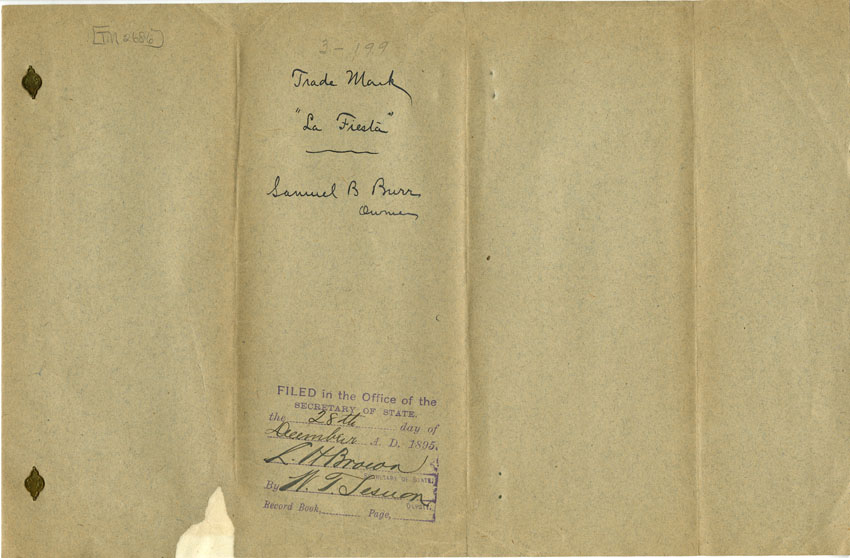 3-199
Trade Mark
"La Fiesta"
Samuel B Burr
Owner
FILED in the Office of the
SECRETARY OF STATE,
the 28th day of
December A. D. 1895.
L. H. Brown
SECRETARY OF STATE.
By W. T. Sesnon
DEPUTY.
Record Book, Page,